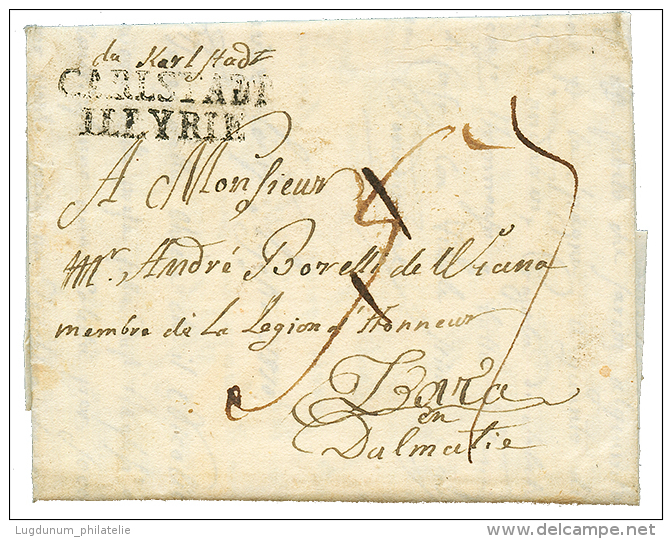 da Karlstadt
CARLSTADT
ILLYRIE
A Monsieur
Mr. André Borelli de Wrana
membre de La Legion d'Honneur
Zara
en
Dalmatie
Lugdunum_philatelie
delcampe.net